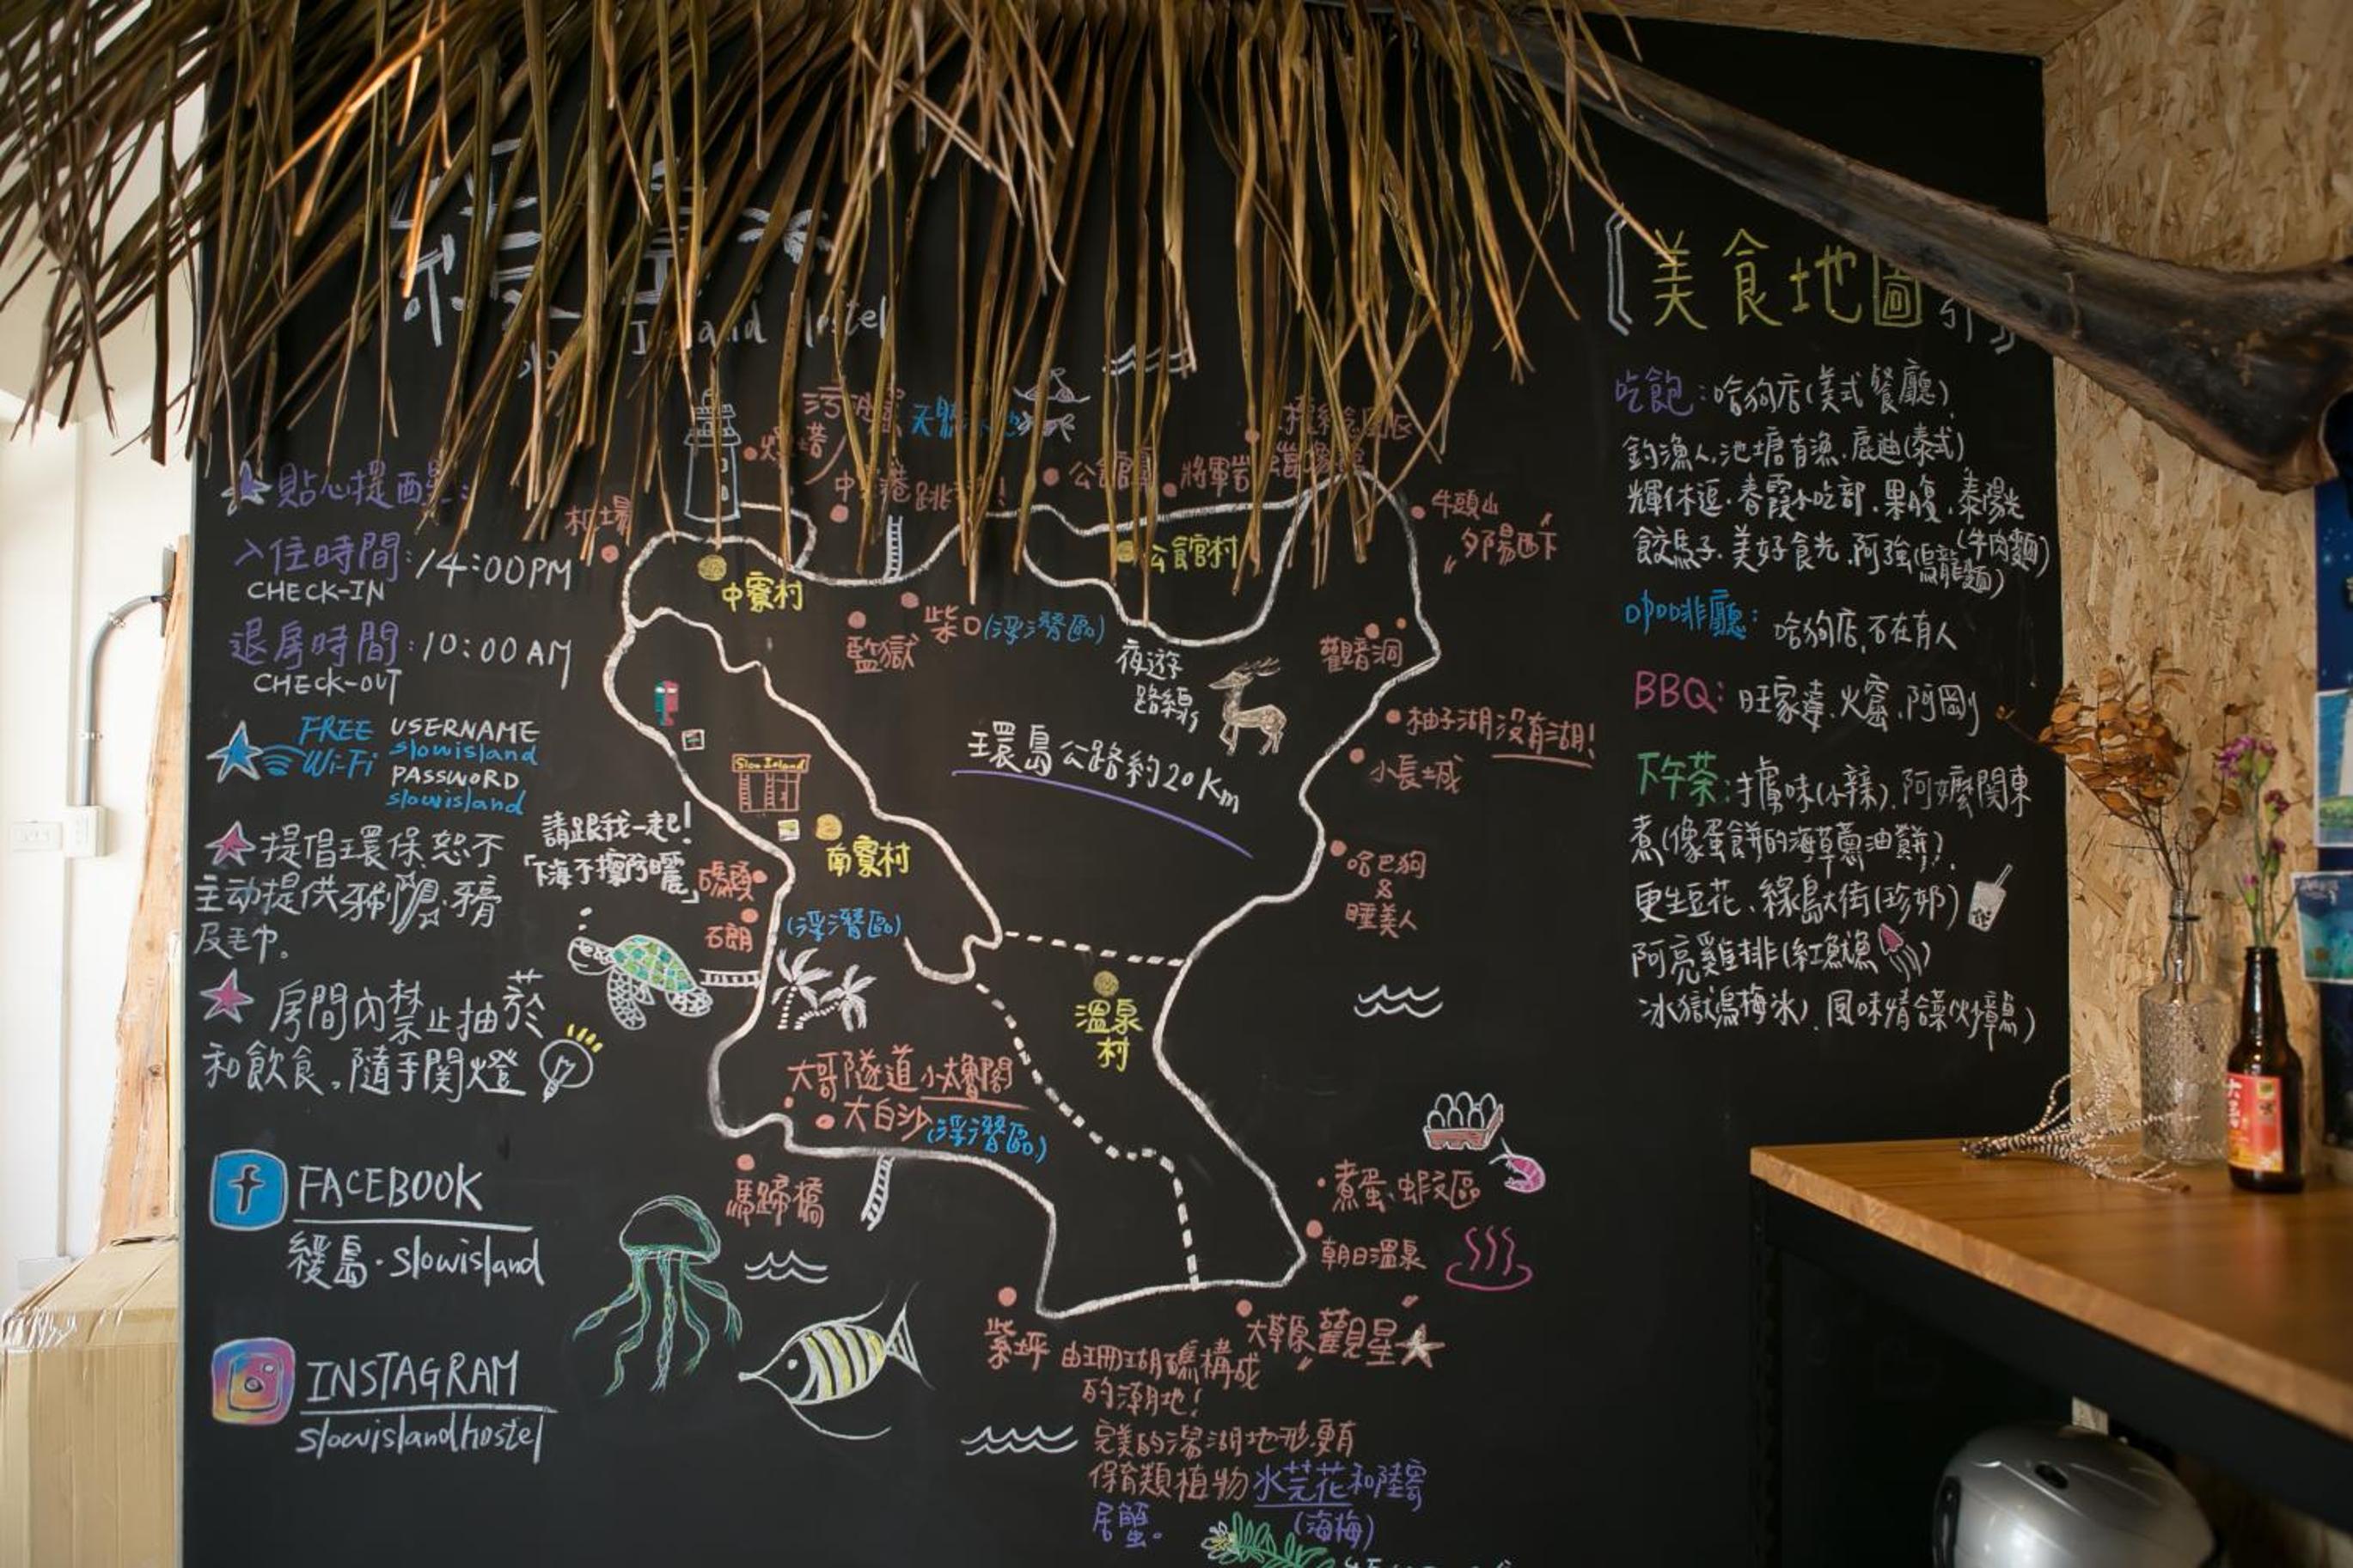 Island Hostel
貼心提醒:
入住時間:14:00PM
CHECK-IN
退房時間:10:00AM
CHECK-OUT
FREE Wi-Fi
USERNAME
slowisland
PASSWORD
slowisland
提倡環保恕不
主動提供牙刷.牙膏
及毛巾。
房間內禁止抽菸
和飲食。隨手関燈
FACEBOOK
緩島·slowisland
INSTAGRAM
slowislandhostel
機場
燈塔
公館鼻
將軍岩
牛頭山
"夕陽西下"
中寮村
公館村
監獄
柴口(浮潛區)
夜遊
路線
觀音洞
環島公路約20Km
柚子湖 沒有湖!
小長城
Slow Island
請跟我一起!
「下海不擦防曬」
南寮村
碼頭
石朗
(浮潛區)
哈巴狗
&
睡美人
溫泉
村
大哥隧道 小太魯閣
大白沙(浮潛區)
馬蹄橋
煮蛋、蝦區
朝日溫泉
大草原"觀星"
紫坪 由珊瑚礁構成
的潮地!
完美的潟湖地形.更有
保育類植物水芫花和陸寄
居蟹。
(海梅)
美食地圖
吃飽:哈狗店(美式餐廳)
釣漁人.池塘有漁.鹿迪(泰式)
輝休逗.春霞小吃部.果腹.泰陽光
餃馬子.美好食光.阿強(烏龍麵)(牛肉麵)
咖啡廳: 哈狗店,不在有人
BBQ: 旺家壹、火窩、阿剛
下午茶:滷味(小辣).阿嬤関東
煮(像蛋餅的海草蔥油餅).
更生豆花、綠島大街(珍奶)
阿亮雞排(紅魷魚)
冰獄(烏梅冰).風味情